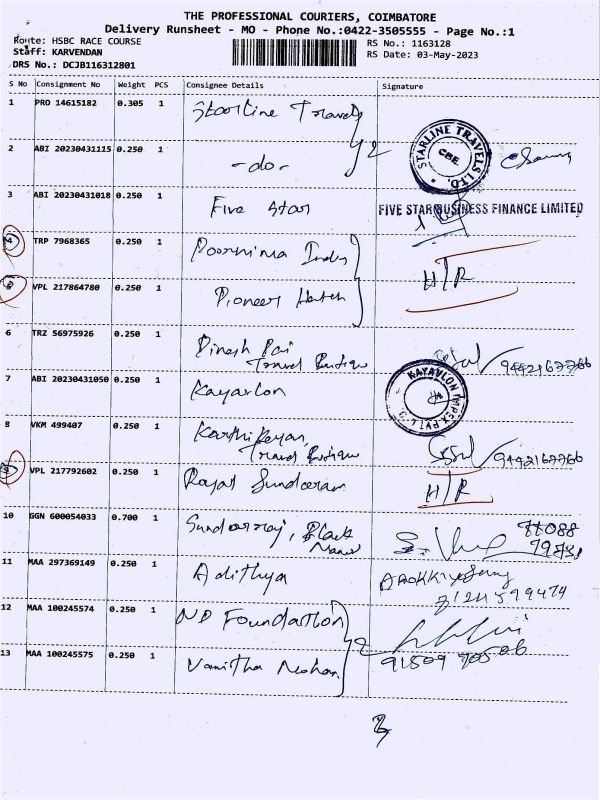 THE PROFESSIONAL COURIERS, COIMBATORE
Delivery Runsheet - MO - Phone No.:0422-3505555 - Page No.:1
Route: HSBC RACE COURSE RS No.: 1163128
Staff: KARVENDAN RS Date: 03-May-2023
DRS No.: DCJB116312801
S No Consignment No Weight PCS Consignee Details Signature
1 PRO 14615182 0.305 1 Starline Travels
2 ABI 20230431115 0.250 1 -do- 2 STARLINE TRAVELS LTD. CBE.
3 ABI 20230431018 0.250 1 Five Star FIVE STAR BUSINESS FINANCE LIMITED
4 TRP 7968365 0.250 1 Poornima Indus H/R
5 VPL 217864780 0.250 1 Pioneer
6 TRZ 56975926 0.250 1 Dinesh Pai
Travel Boutique 9442167766
7 ABI 20230431050 0.250 1 Kayavlon KAYAVLON IMPEX PVT LTD
8 VKM 499407 0.250 1 Karthikeyan,
Travel Boutique 9442167766
9 VPL 217792602 0.250 1 Rajat Sundaram H/R
10 GGN 600054033 0.700 1 Sundarraj, Black
11 MAA 297369149 0.250 1 Adithya
12 MAA 100245574 0.250 1 ND Foundation
13 MAA 100245575 0.250 1 Vanitha Mohan 2 91509 70506